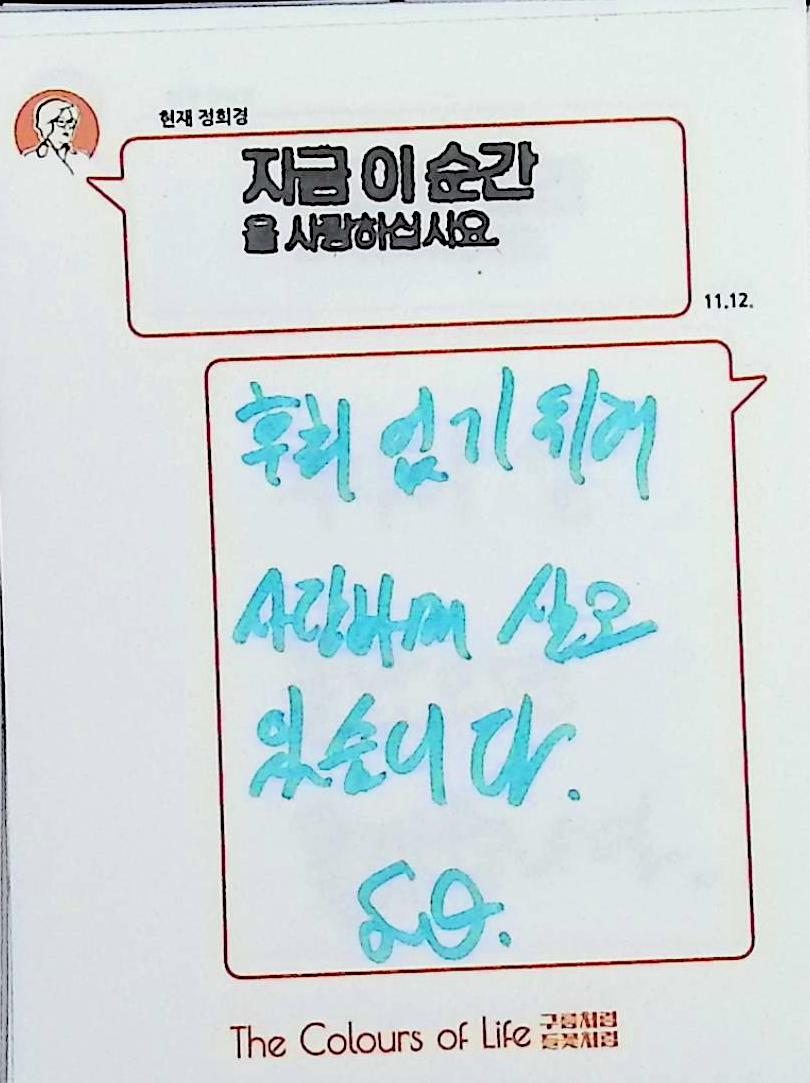 현재 정희경
지금 이 순간
을 사랑하십시요.
11.12.
후회 없기 위해
사랑하며 살고
있습니다.
The Colours of Life 구름처럼
들꽃처럼